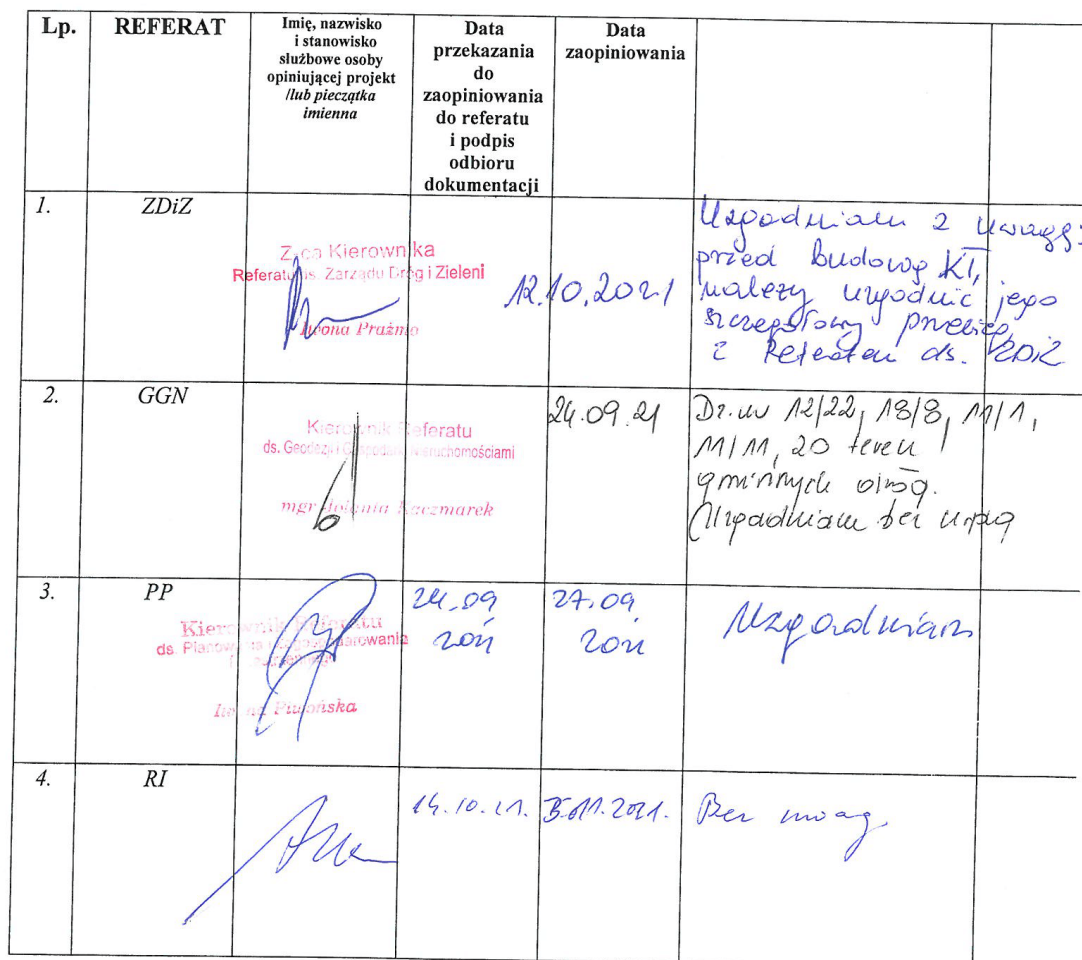 Lp.
REFERAT
Imię, nazwisko
i stanowisko
służbowe osoby
opiniującej projekt
/lub pieczątka
imienna
Data
przekazania
do
zaopiniowania
do referatu
i podpis
odbioru
dokumentacji
Data
zaopiniowania
1.
ZDiZ
Z-ca Kierownika
Referatu ds. Zarządu Dróg i Zieleni
Iwona Prażmo
12.10.2021
Uzgadniam z uwagą:
przed budową KT,
należy uzgodnić jego
szczegółowy przebieg
z Referatem ds. ZDiZ
2.
GGN
Kierownik Referatu
ds. Geodezji i Gospodarki Nieruchomościami
mgr Jolanta Kaczmarek
24.09.21
Dz. nr 12/22, 18/8, 11/1,
11/11, 20 teren
gminnych dróg.
Uzgadniam bez uwag
3.
PP
Kierownik Referatu
ds. Planowania i Zagospodarowania
Iwona
24.09
27.09
Uzgadniam
4.
RI
14.10.21.
11.2021.
Bez uwag